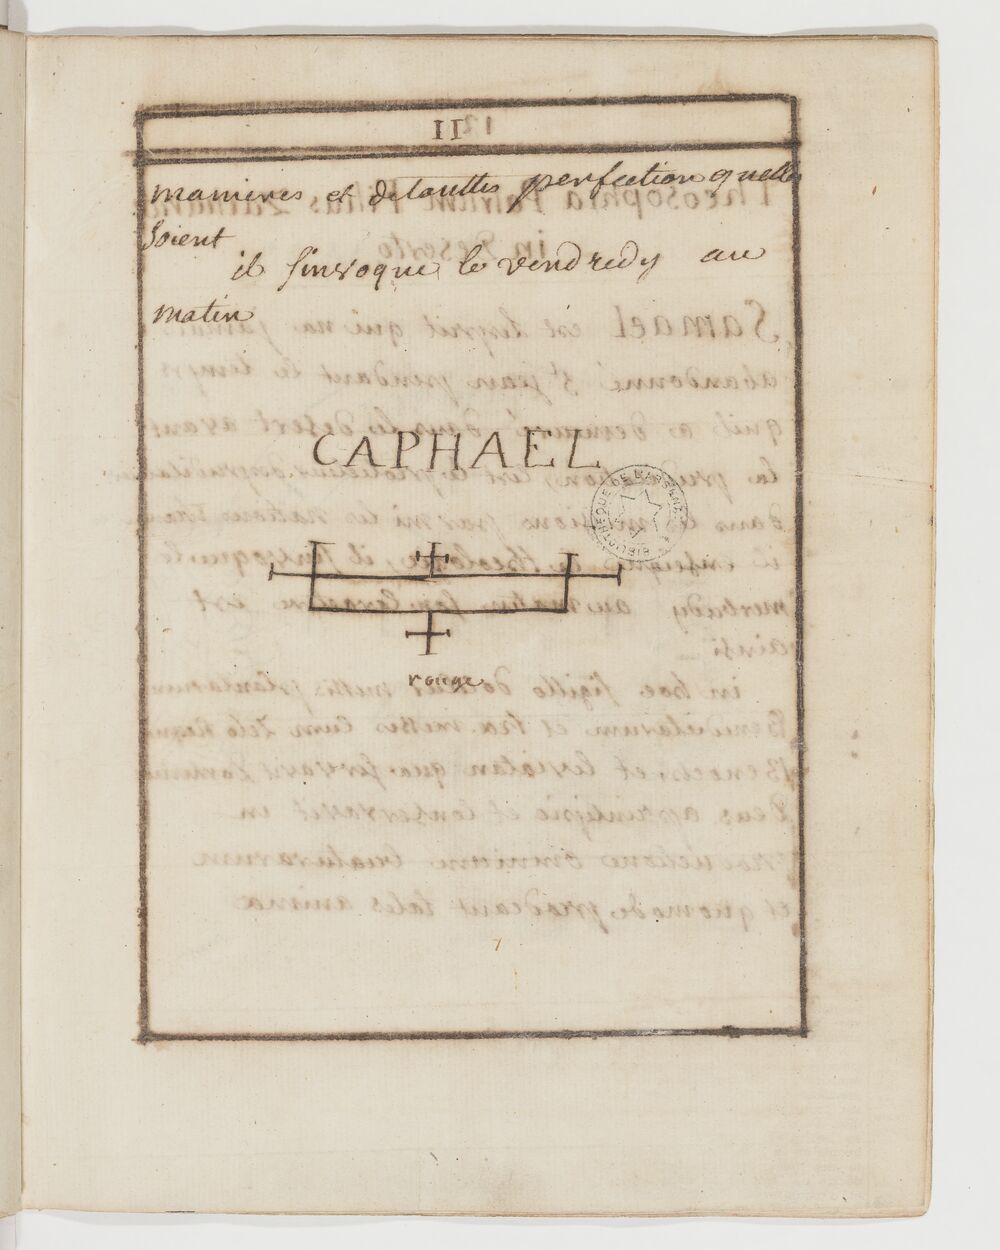 11
manieres et de touttes perfection quelles
soient
il sinvoque le vendredy au
matin
CAPHAEL
BIBLIOTHEQUE DE L'ARSENAL
rouge